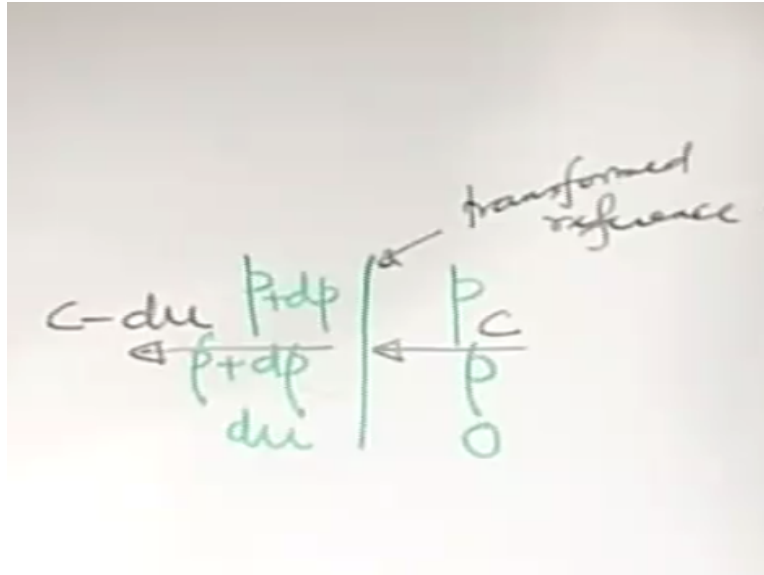 transformed
reference
c-du p+dp p c
ρ+dρ ρ
du 0